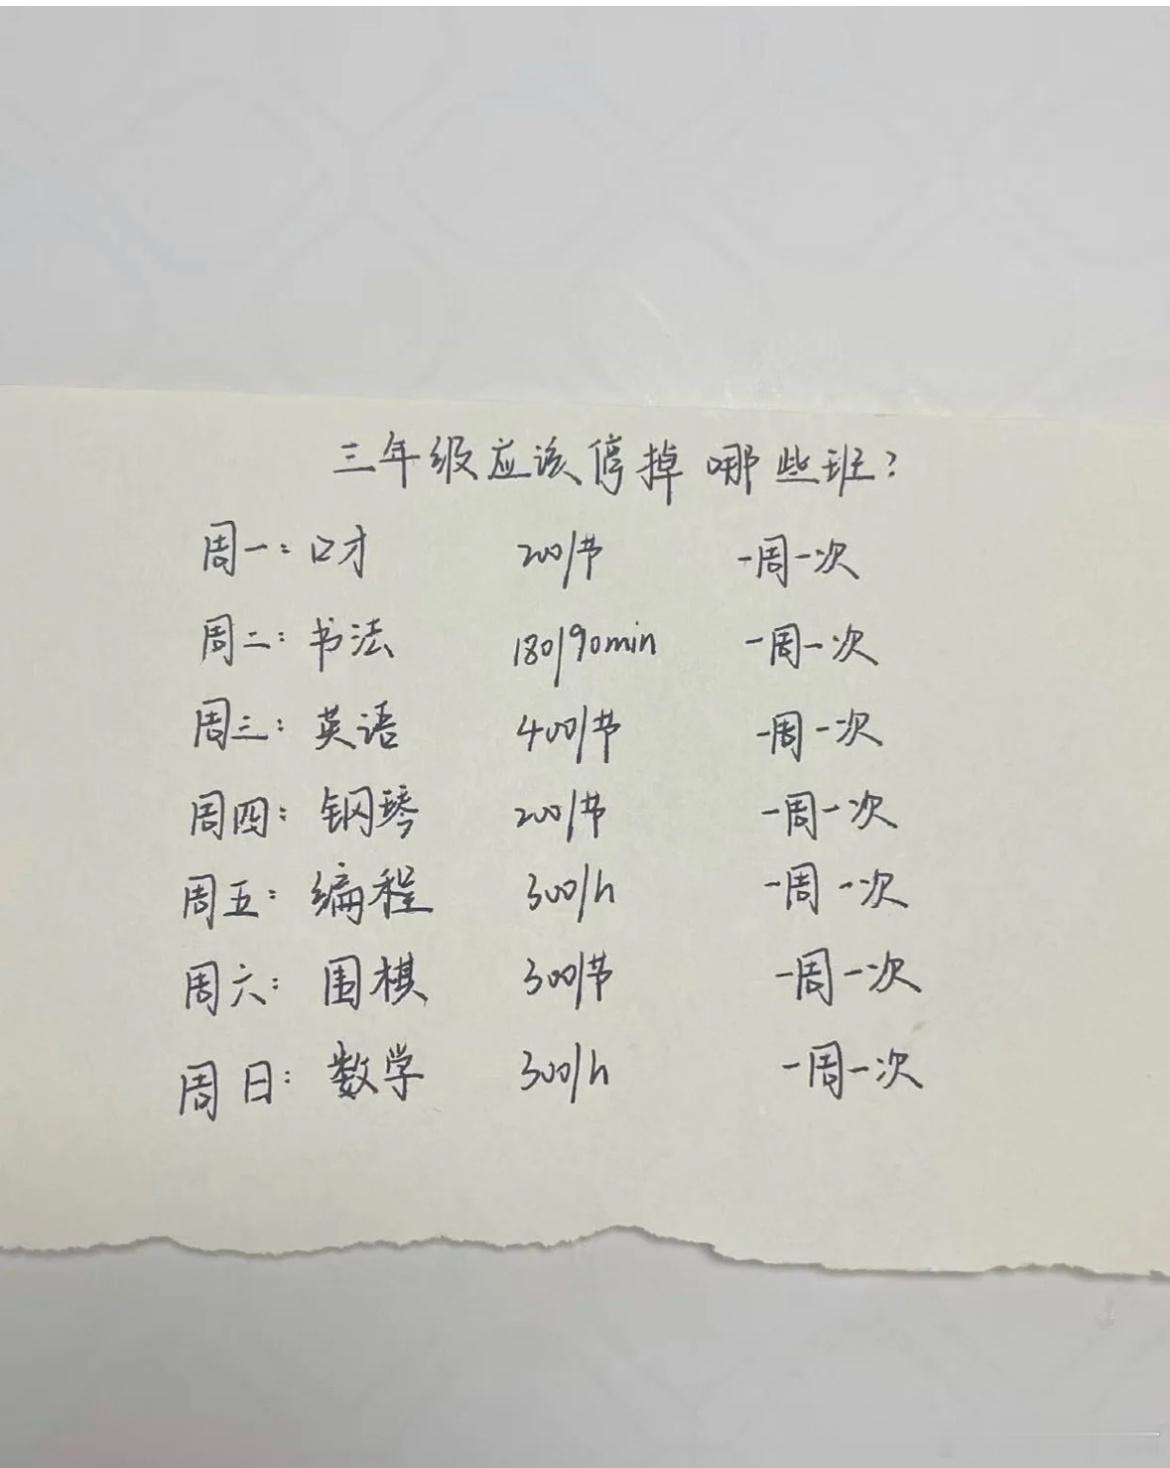 三年级应该停掉哪些班?
周一: 口才 200/节 一周一次
周二: 书法 180/90min 一周一次
周三: 英语 400/节 一周一次
周四: 钢琴 200/节 一周一次
周五: 编程 300/h 一周一次
周六: 围棋 300/节 一周一次
周日: 数学 300/h 一周一次